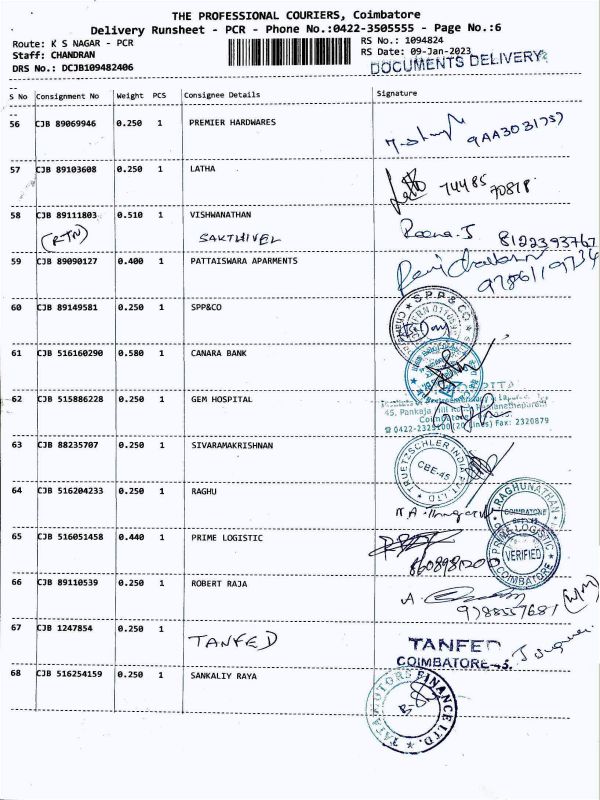 THE PROFESSIONAL COURIERS, Coimbatore
Delivery Runsheet - PCR - Phone No.:0422-3505555 - Page No.:6
Route: K S NAGAR - PCR
RS No.: 1094824
Staff: CHANDRAN
RS Date: 09-Jan-2023
DRS No.: DCJB109482406
DOCUMENTS DELIVERY
S No Consignment No Weight PCS Consignee Details Signature
56 CJB 89069946 0.250 1 PREMIER HARDWARES
57 CJB 89103608 0.250 1 LATHA
74485
70818
58 CJB 89111803 0.510 1 VISHWANATHAN
(RTN) SAKTHIVEL Reena.J 8122393767
59 CJB 89090127 0.400 1 PATTAISWARA APARMENTS
9786119734
60 CJB 89149581 0.250 1 SPP&CO
SPP & CO
61 CJB 516160290 0.580 1 CANARA BANK
62 CJB 515886228 0.250 1 GEM HOSPITAL
45, Pankaja Mill Road, Ramanathapuram
Coimbatore
0422-2325100 (20 Lines) Fax: 2320879
63 CJB 88235707 0.250 1 SIVARAMAKRISHNAN
TRUETZSCHLER INDIA PVT LTD
CBE-45
64 CJB 516204233 0.250 1 RAGHU
RAGHUNATHAN
COIMBATORE
65 CJB 516051458 0.440 1 PRIME LOGISTIC
PRIME LOGISTIC
VERIFIED
COIMBATORE
66 CJB 89110539 0.250 1 ROBERT RAJA
9788557681
67 CJB 1247854 0.250 1
TANFED
TANFED
COIMBATORE-45.
68 CJB 516254159 0.250 1 SANKALIY RAYA
TATA MOTORS FINANCE LTD.